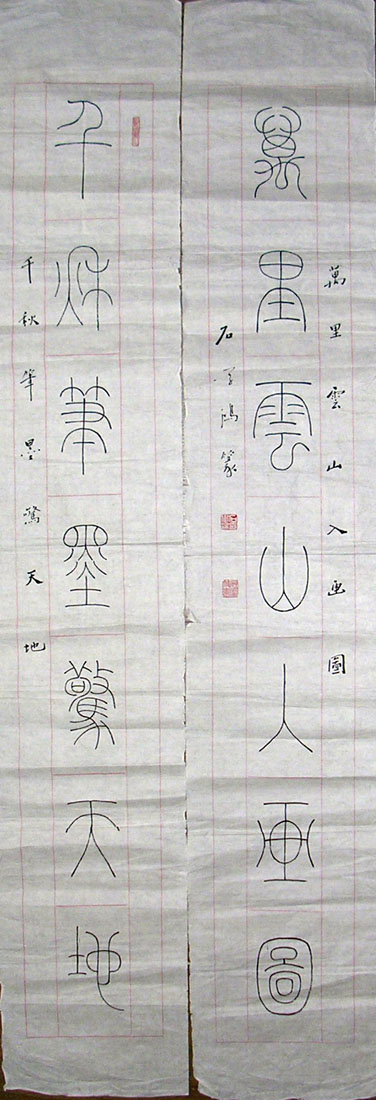 萬里雲山入画圖
萬里雲山入画圖
石学鴻篆
千秋筆墨驚天地
千秋筆墨驚天地